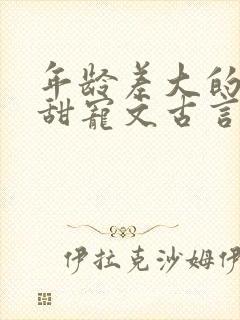 年龄差大的
甜宠文古言
伊拉克沙姆伊